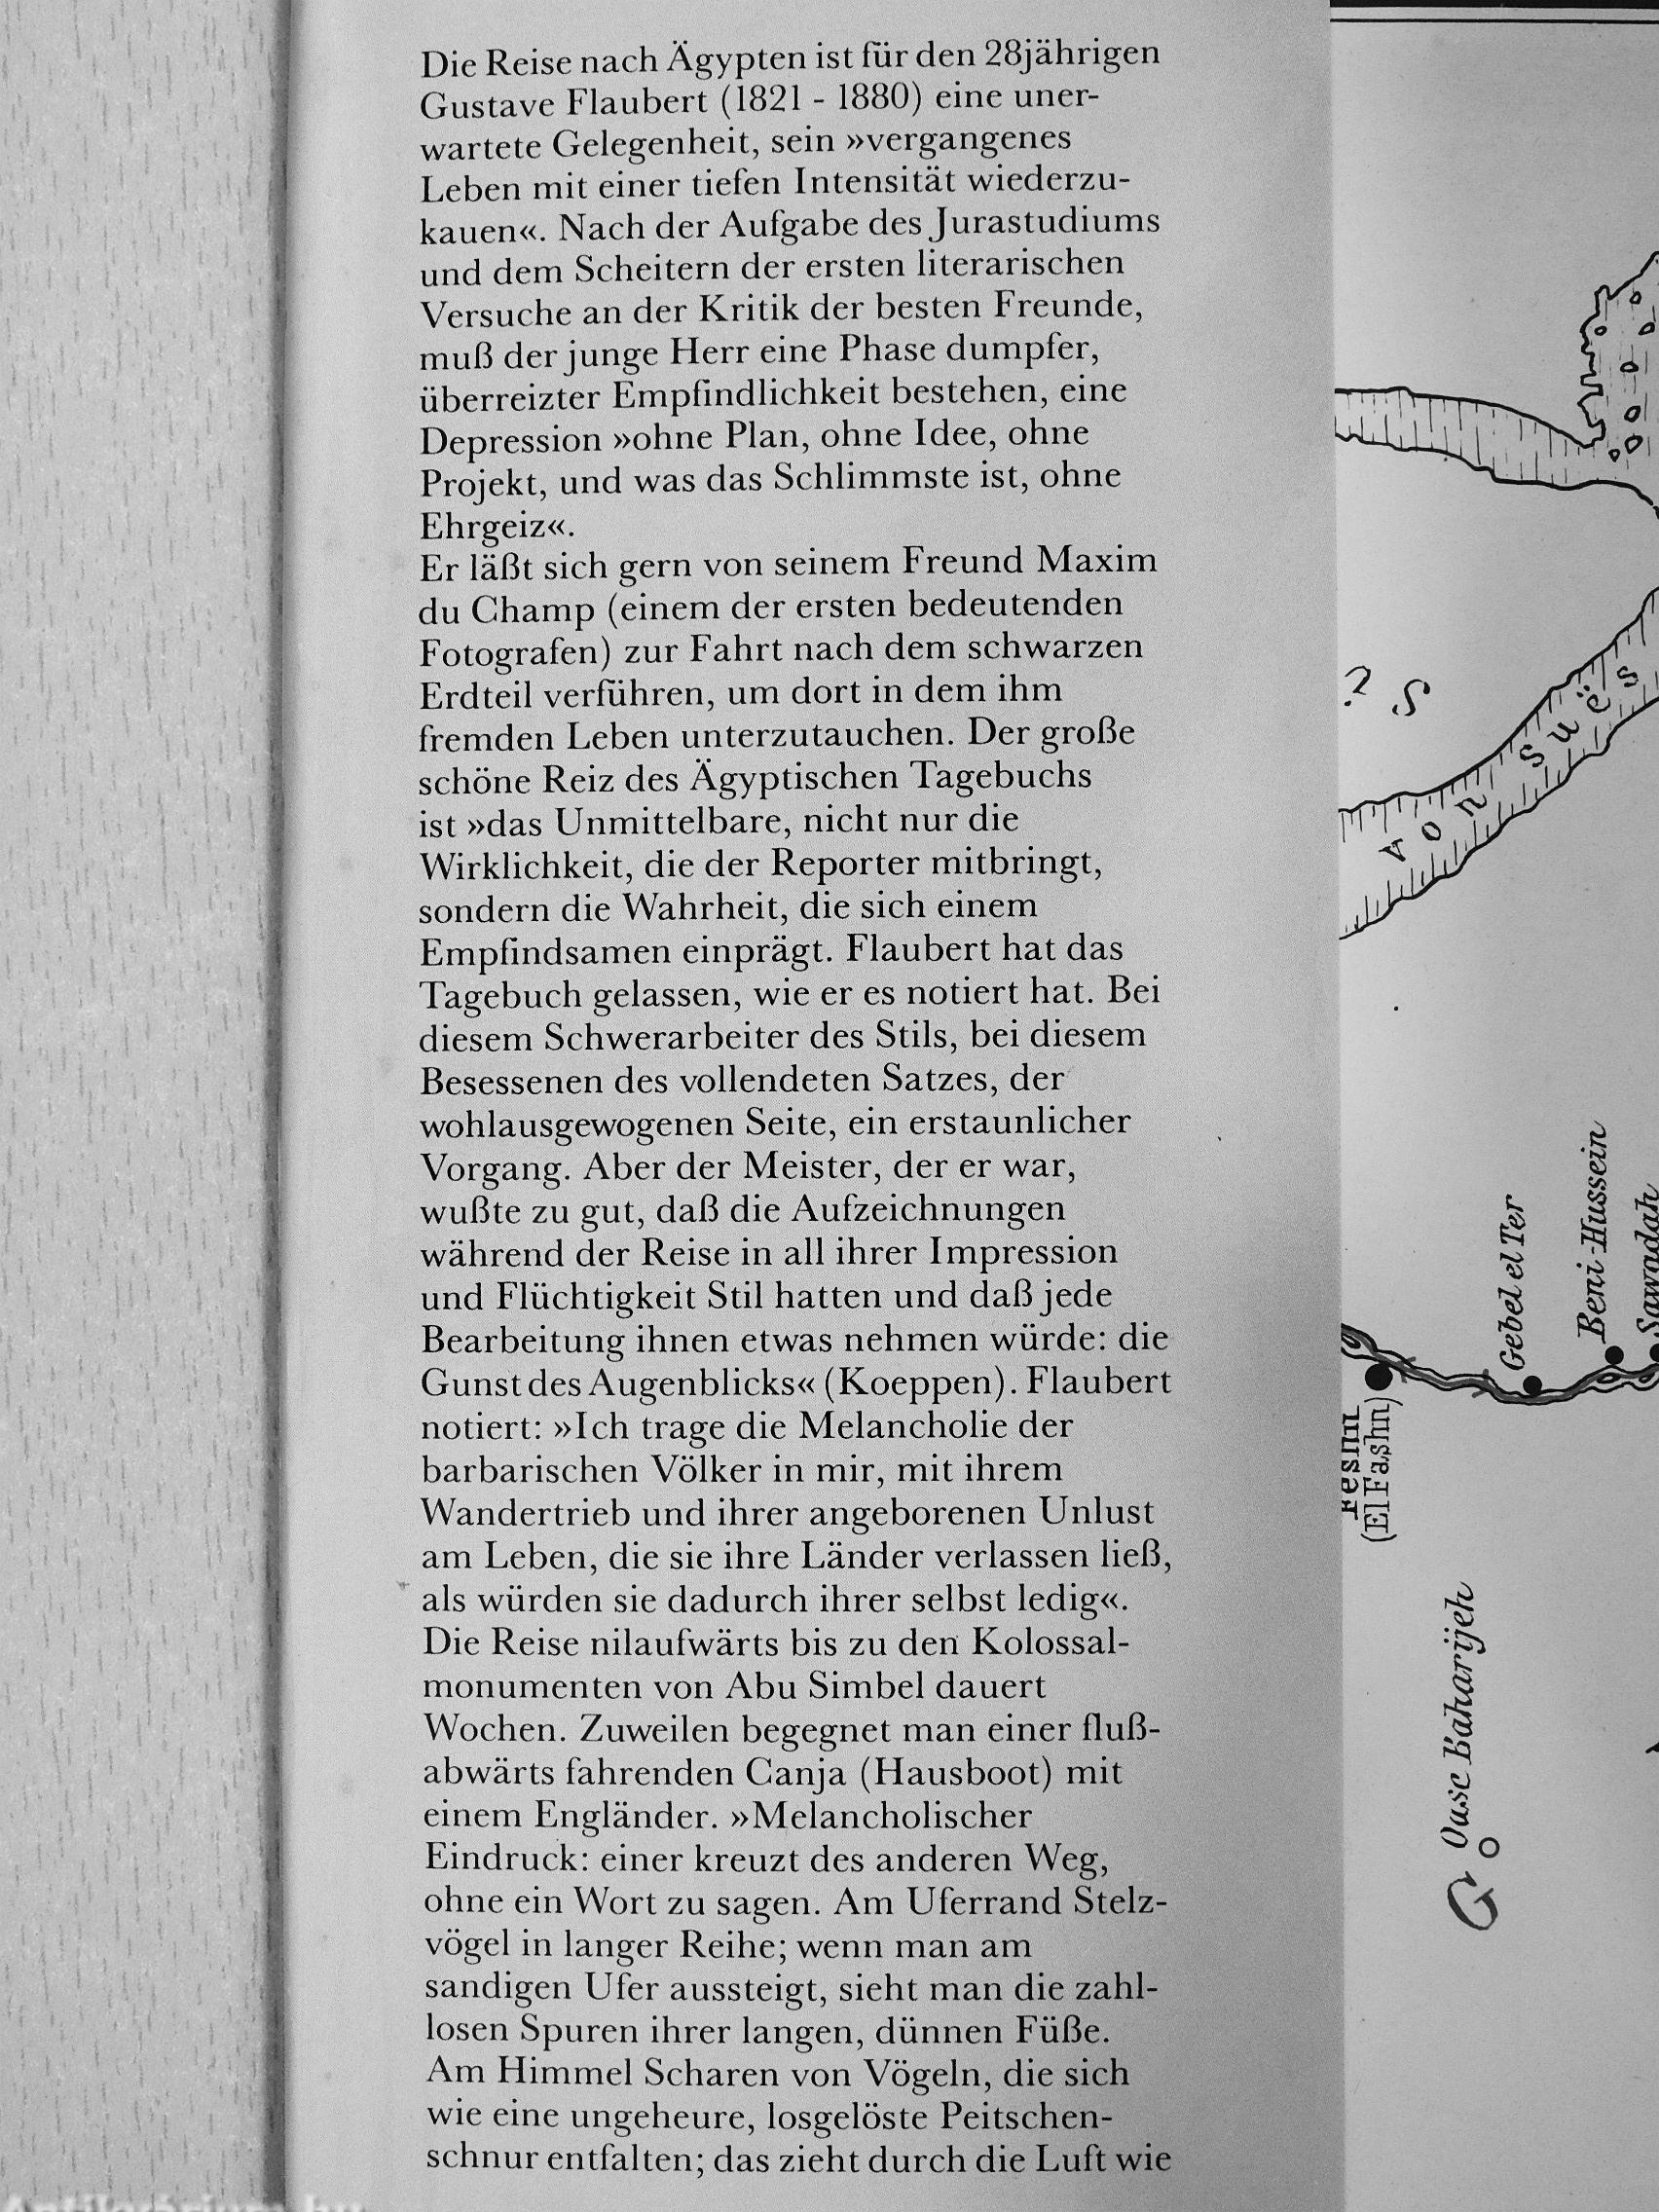 Die Reise nach Ägypten ist für den 28jährigen
Gustave Flaubert (1821 - 1880) eine uner-
wartete Gelegenheit, sein »vergangenes
Leben mit einer tiefen Intensität wiederzu-
kauen«. Nach der Aufgabe des Jurastudiums
und dem Scheitern der ersten literarischen
Versuche an der Kritik der besten Freunde,
muß der junge Herr eine Phase dumpfer,
überreizter Empfindlichkeit bestehen, eine
Depression »ohne Plan, ohne Idee, ohne
Projekt, und was das Schlimmste ist, ohne
Ehrgeiz«.
Er läßt sich gern von seinem Freund Maxim
du Champ (einem der ersten bedeutenden
Fotografen) zur Fahrt nach dem schwarzen
Erdteil verführen, um dort in dem ihm
fremden Leben unterzutauchen. Der große
schöne Reiz des Ägyptischen Tagebuchs
ist »das Unmittelbare, nicht nur die
Wirklichkeit, die der Reporter mitbringt,
sondern die Wahrheit, die sich einem
Empfindsamen einprägt. Flaubert hat das
Tagebuch gelassen, wie er es notiert hat. Bei
diesem Schwerarbeiter des Stils, bei diesem
Besessenen des vollendeten Satzes, der
wohlausgewogenen Seite, ein erstaunlicher
Vorgang. Aber der Meister, der er war,
wußte zu gut, daß die Aufzeichnungen
während der Reise in all ihrer Impression
und Flüchtigkeit Stil hatten und daß jede
Bearbeitung ihnen etwas nehmen würde: die
Gunst des Augenblicks« (Koeppen). Flaubert
notiert: »Ich trage die Melancholie der
barbarischen Völker in mir, mit ihrem
Wandertrieb und ihrer angeborenen Unlust
am Leben, die sie ihre Länder verlassen ließ,
als würden sie dadurch ihrer selbst ledig«.
Die Reise nilaufwärts bis zu den Kolossal-
monumenten von Abu Simbel dauert
Wochen. Zuweilen begegnet man einer fluß-
abwärts fahrenden Canja (Hausboot) mit
einem Engländer. »Melancholischer
Eindruck: einer kreuzt des anderen Weg,
ohne ein Wort zu sagen. Am Uferrand Stelz-
vögel in langer Reihe; wenn man am
sandigen Ufer aussteigt, sieht man die zahl-
losen Spuren ihrer langen, dünnen Füße.
Am Himmel Scharen von Vögeln, die sich
wie eine ungeheure, losgelöste Peitschen-
schnur entfalten; das zieht durch die Luft wie
von Suës
Gebel el Ter
Beni-Hussein
Sawadah
(El Fashn)
Oase Baharijeh
G